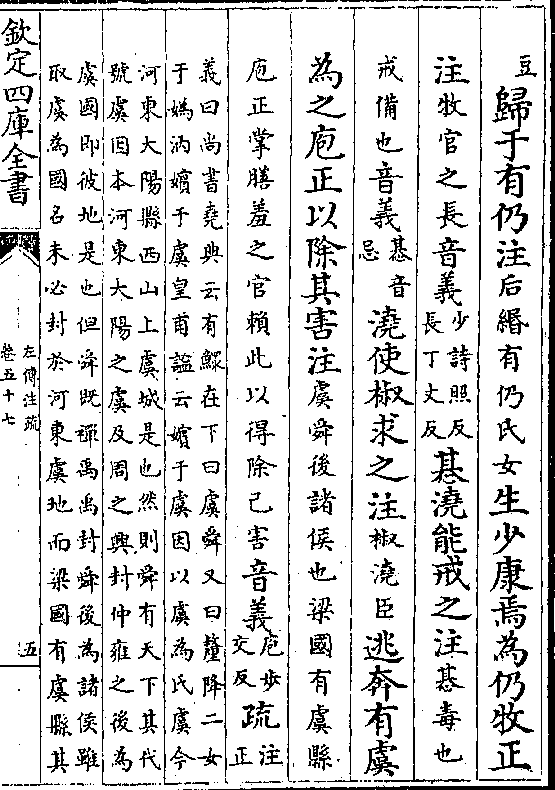 豆歸于有仍注后緡有仍氏女生少康焉為仍牧正
注牧官之長音義少詩照反長丁丈反惎澆能戒之注惎毒也
戒備也音義惎音忌澆使椒求之注椒澆臣逃奔有虞
為之庖正以除其害注虞舜後諸侯也梁國有虞縣
庖正掌膳羞之官賴此以得除己害音義庖步交反疏注正
義曰尚書堯典云有鰥在下曰虞舜又曰釐降二女
于媯汭嬪于虞皇甫謐云嬪于虞因以虞為氏虞今
河東大陽縣西山上虞城是也然則舜有天下其代
號虞因本河東大陽之虞及周之興封仲雍之後為
虞國即彼地是也但舜既禪禹禹封舜後為諸侯雖
取虞為國名未必封於河東虞地而梁國有虞縣其
欽定四庫全書
左傳注疏
卷五十七
五